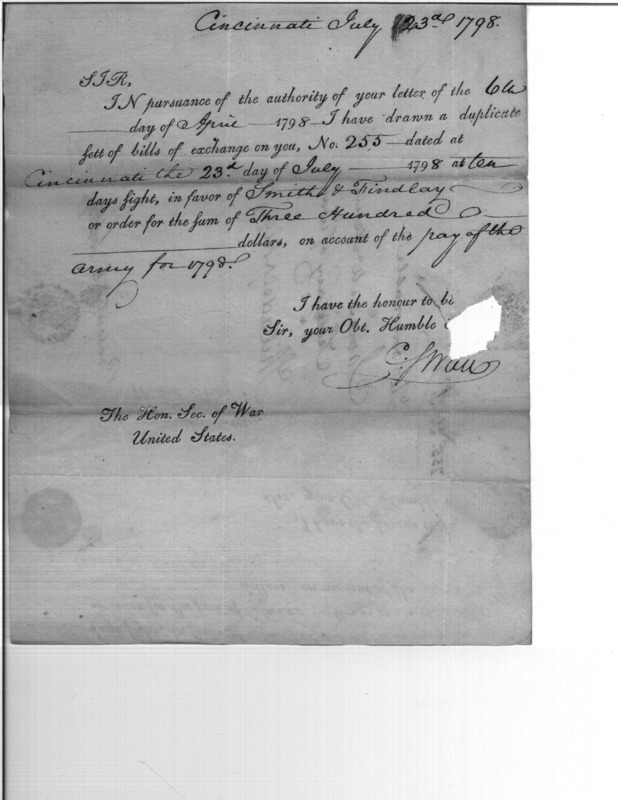 Cincinnati July 23d 1798.
SIR,
IN pursuance of the authority of your letter of the 6th
day of April 1798 I have drawn a duplicate
sett of bills of exchange on you, No. 255 dated at
Cincinnati the 23d day of July 1798 at ten
days sight, in favor of Smith & Findlay
or order for the sum of Three Hundred
dollars, on account of the pay of the
army for 1798.
I have the honour to be
Sir, your Obt. Humble
C. Swan
The Hon. Sec. of War
United States.